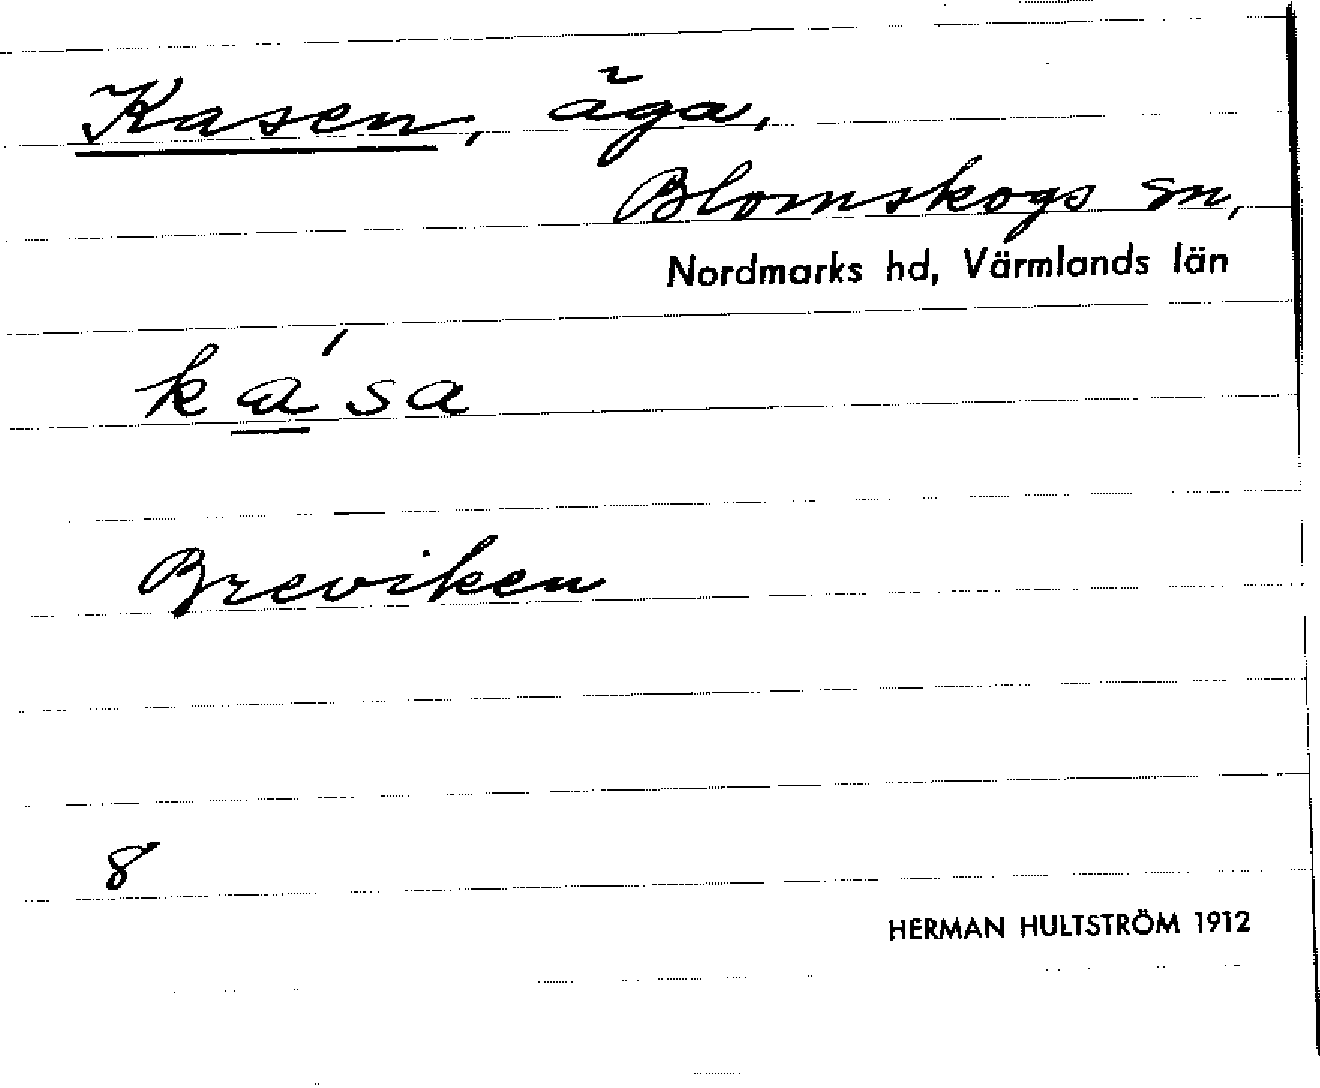 Kasen, äga,
Blomskogs sn,
Nordmarks hd, Värmlands län
ka̲´sa
Breviken
8
HERMAN HULTSTRÖM 1912